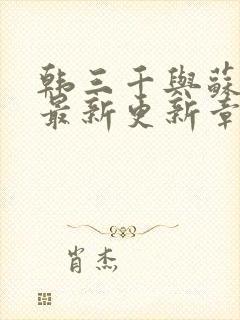 韩三千與蘇
最新更新章
肖杰